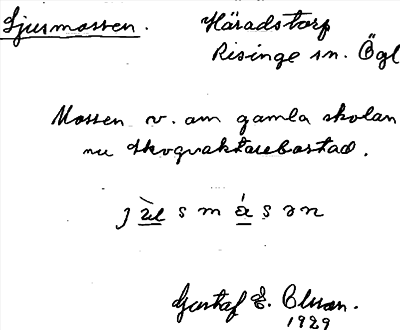 Ljusmossen. Häradstorp
Risinge sn. Ögl
Mossen v. om gamla skolan
nu skogvaktarebostad.
Gustaf E. Olsson.
1929